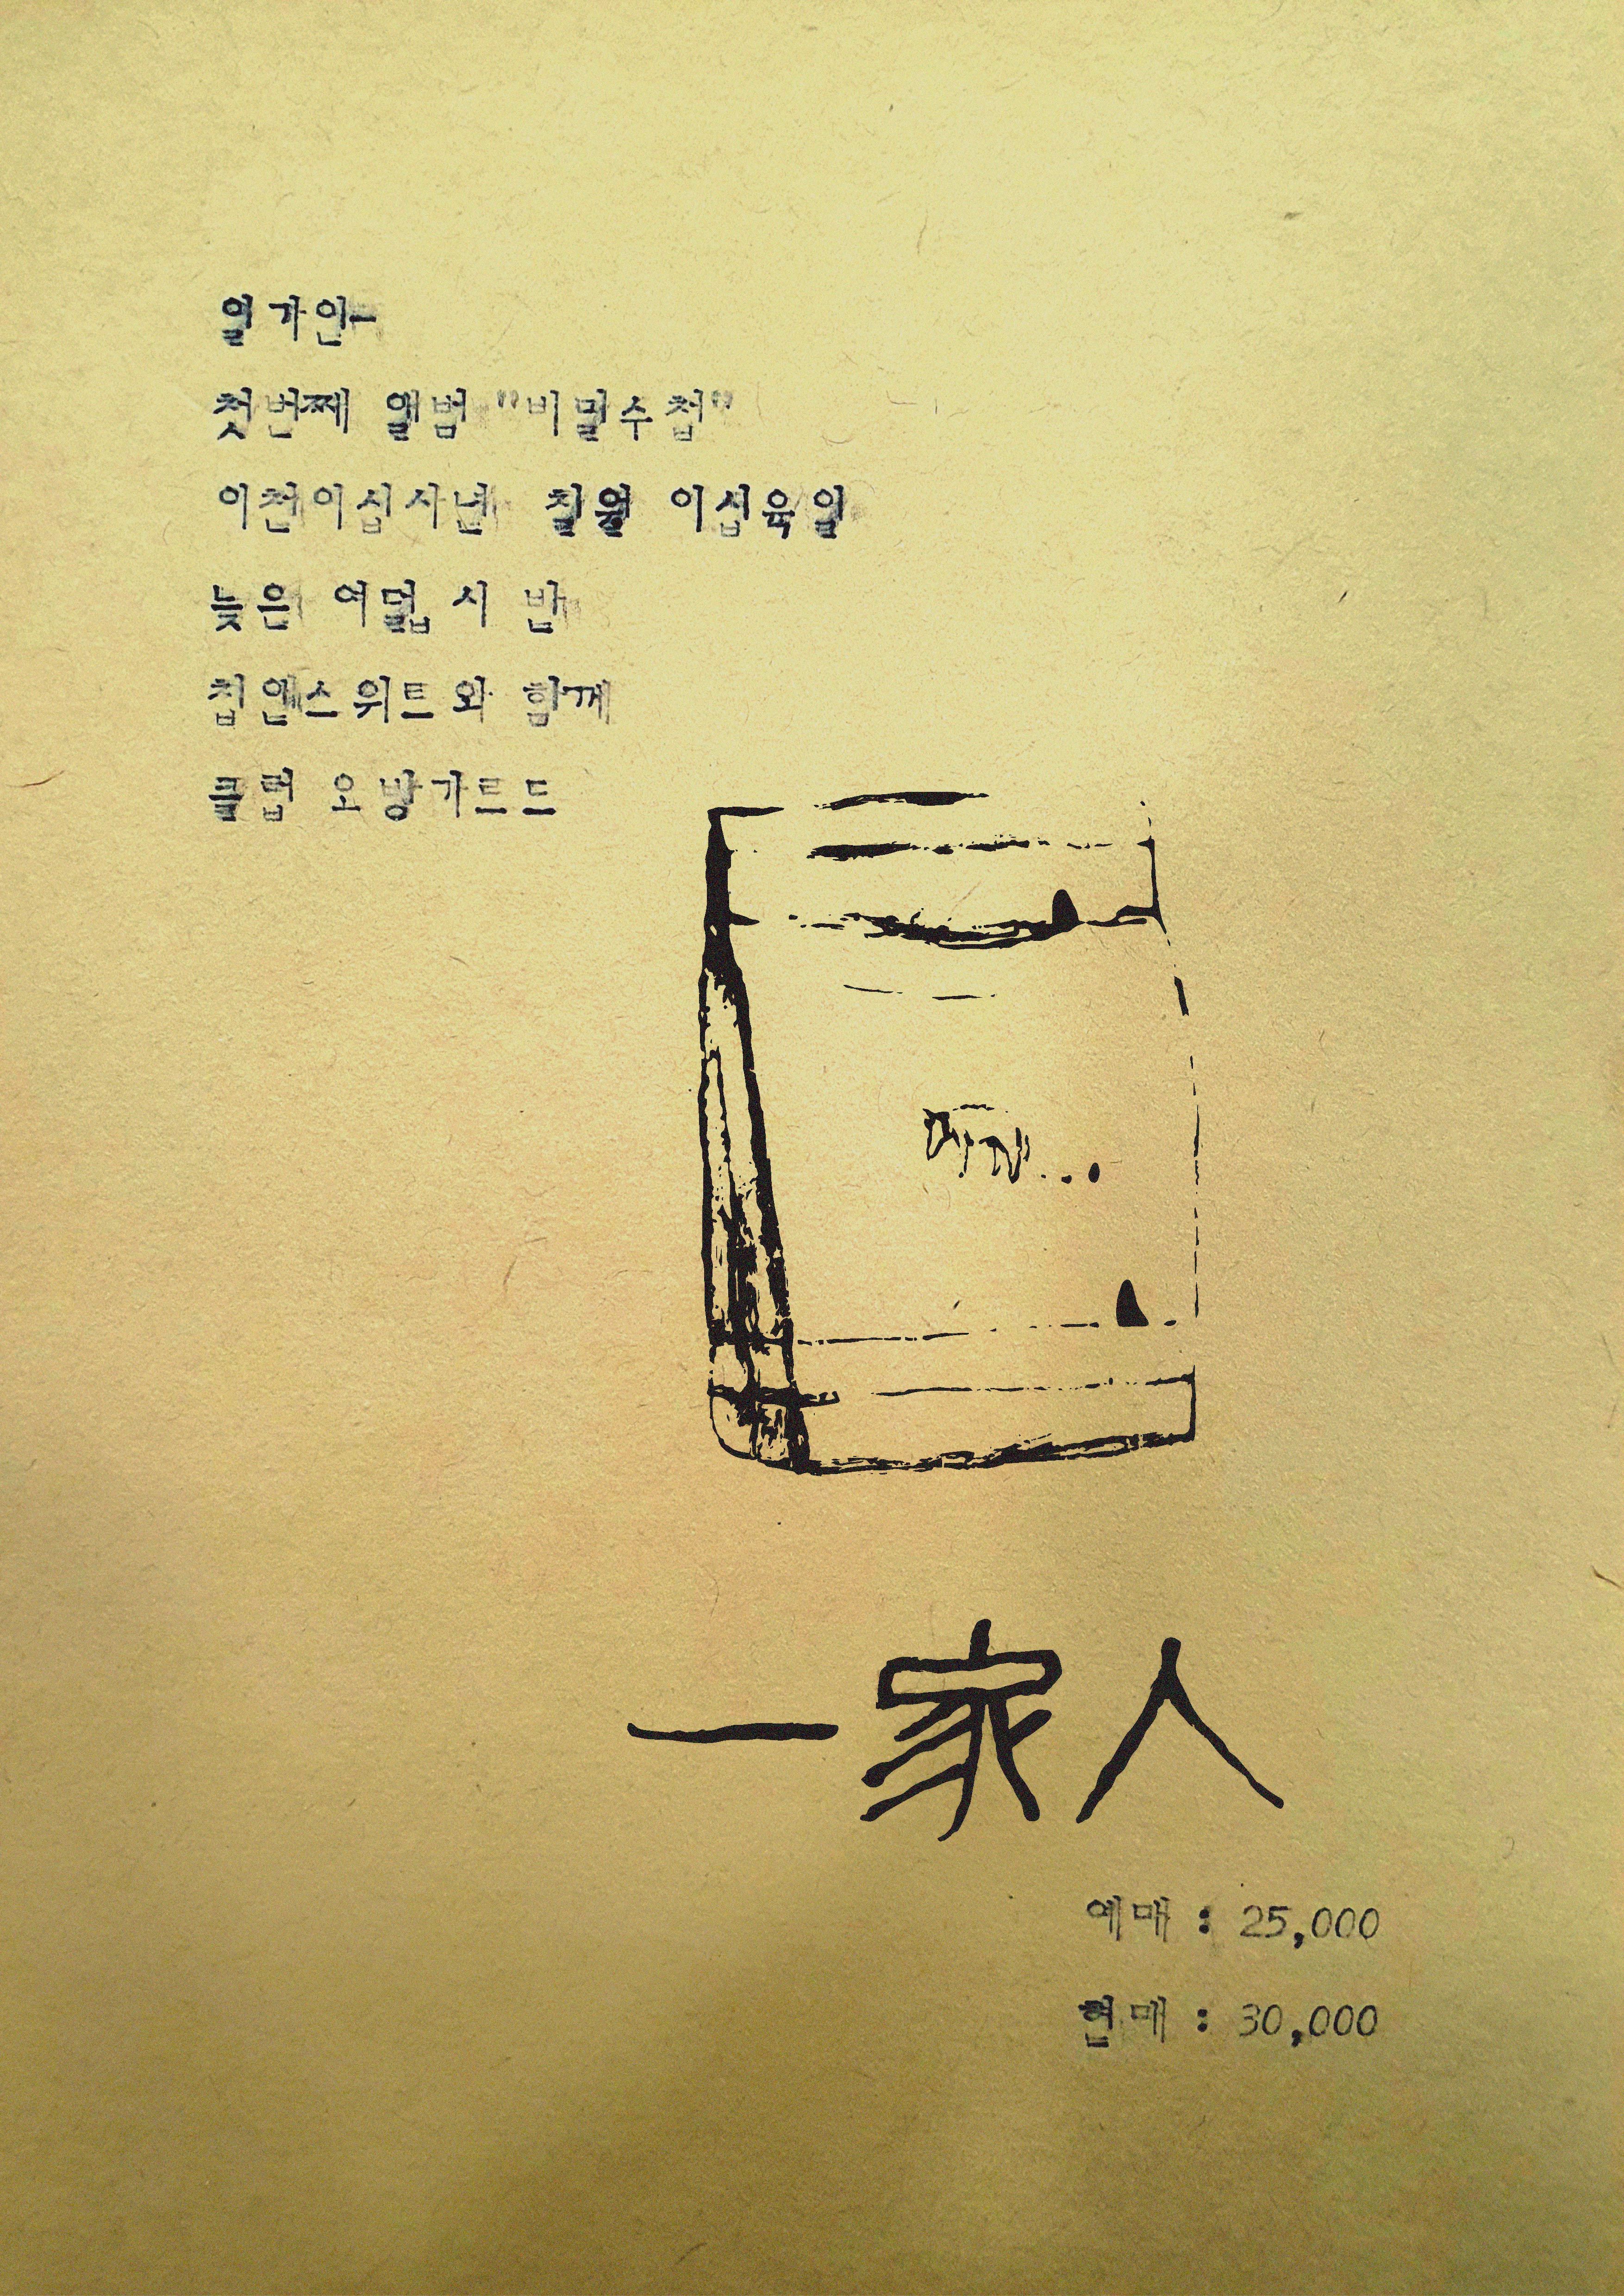 일가인-
첫번째 앨범 "비밀수첩"
이천이십사년 칠월 이십육일
늦은 여덟 시 반
칩앤스위트와 함께
클럽 오방가르드
一家人
예매 : 25,000
현매 : 30,000